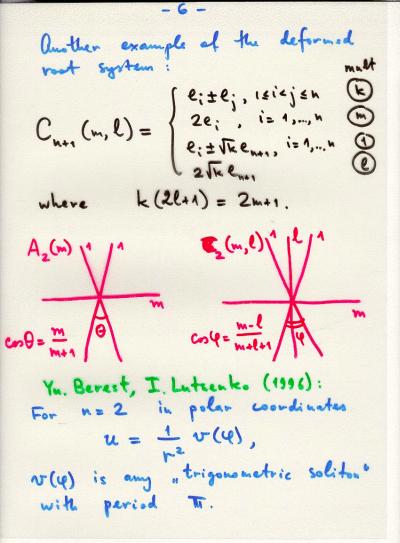 - 6 -
Another example of the deformed
root system:
mult
C_{n+1}(m,l) = { e_i ± e_j, 1≤i<j≤n (k)
2e_i, i=1,...,n (m)
e_i ± √k e_{n+1}, i=1,..,n (1)
2√k e_{n+1} (l)
where k(2l+1) = 2m+1.
A_2(m) 1 1
m
θ
cosθ = m/(m+1)
C_2(m,l) 1 l 1
m
φ
cosφ = (m-l)/(m+l+1)
Yu. Berest, I. Lutsenko (1996):
For n=2 in polar coordinates
u = 1/r² v(φ),
v(φ) is any „trigonometric soliton"
with period π.